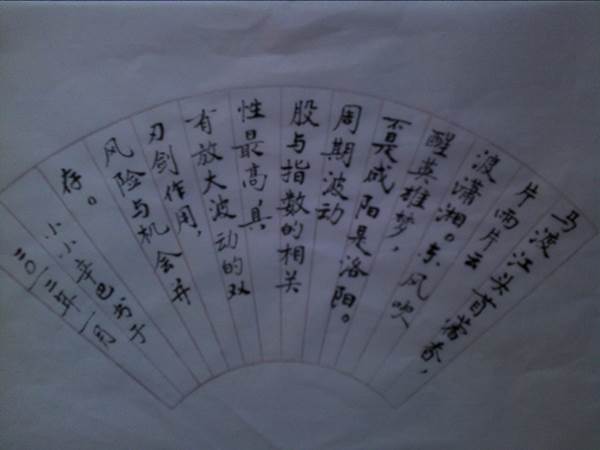 马渡江头苜蓿香，
片雨片云
渡潇湘。东风吹
醒英雄梦，
不是咸阳是洛阳。
周期波动
股与指数的相关
性最高，具
有放大波动的双
刃剑作用，
风险与机会并
存。
小小辛巴书于
二〇一三年一月